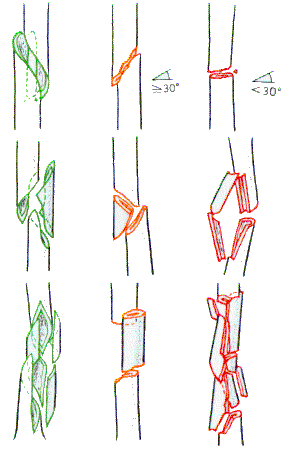 ≥30°
<30°